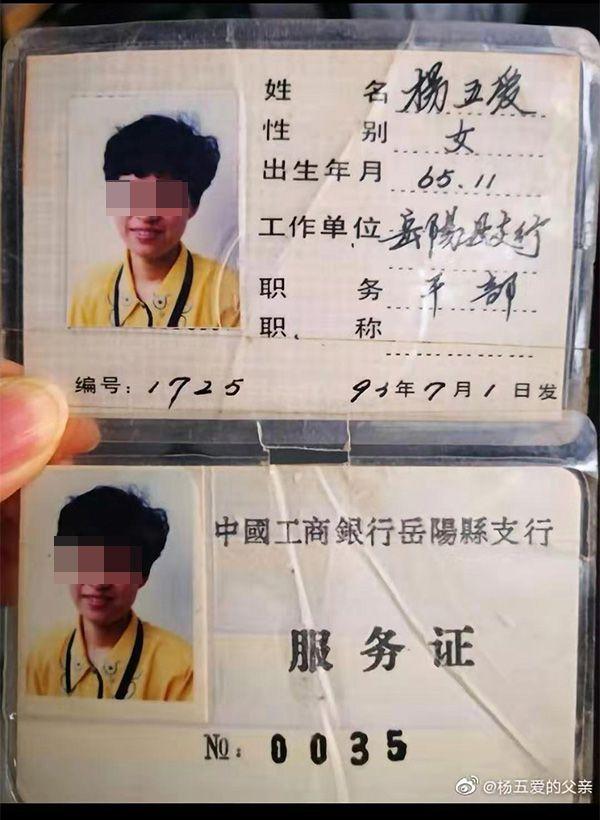 姓 名 楊五爱
性 别 女
出生年月 65.11
工作单位 岳陽县支行
职 务 干部
职 称
编号: 1725 93年7月1日发
中國工商銀行岳陽縣支行
服务证
№: 0035
@杨五爱的父亲